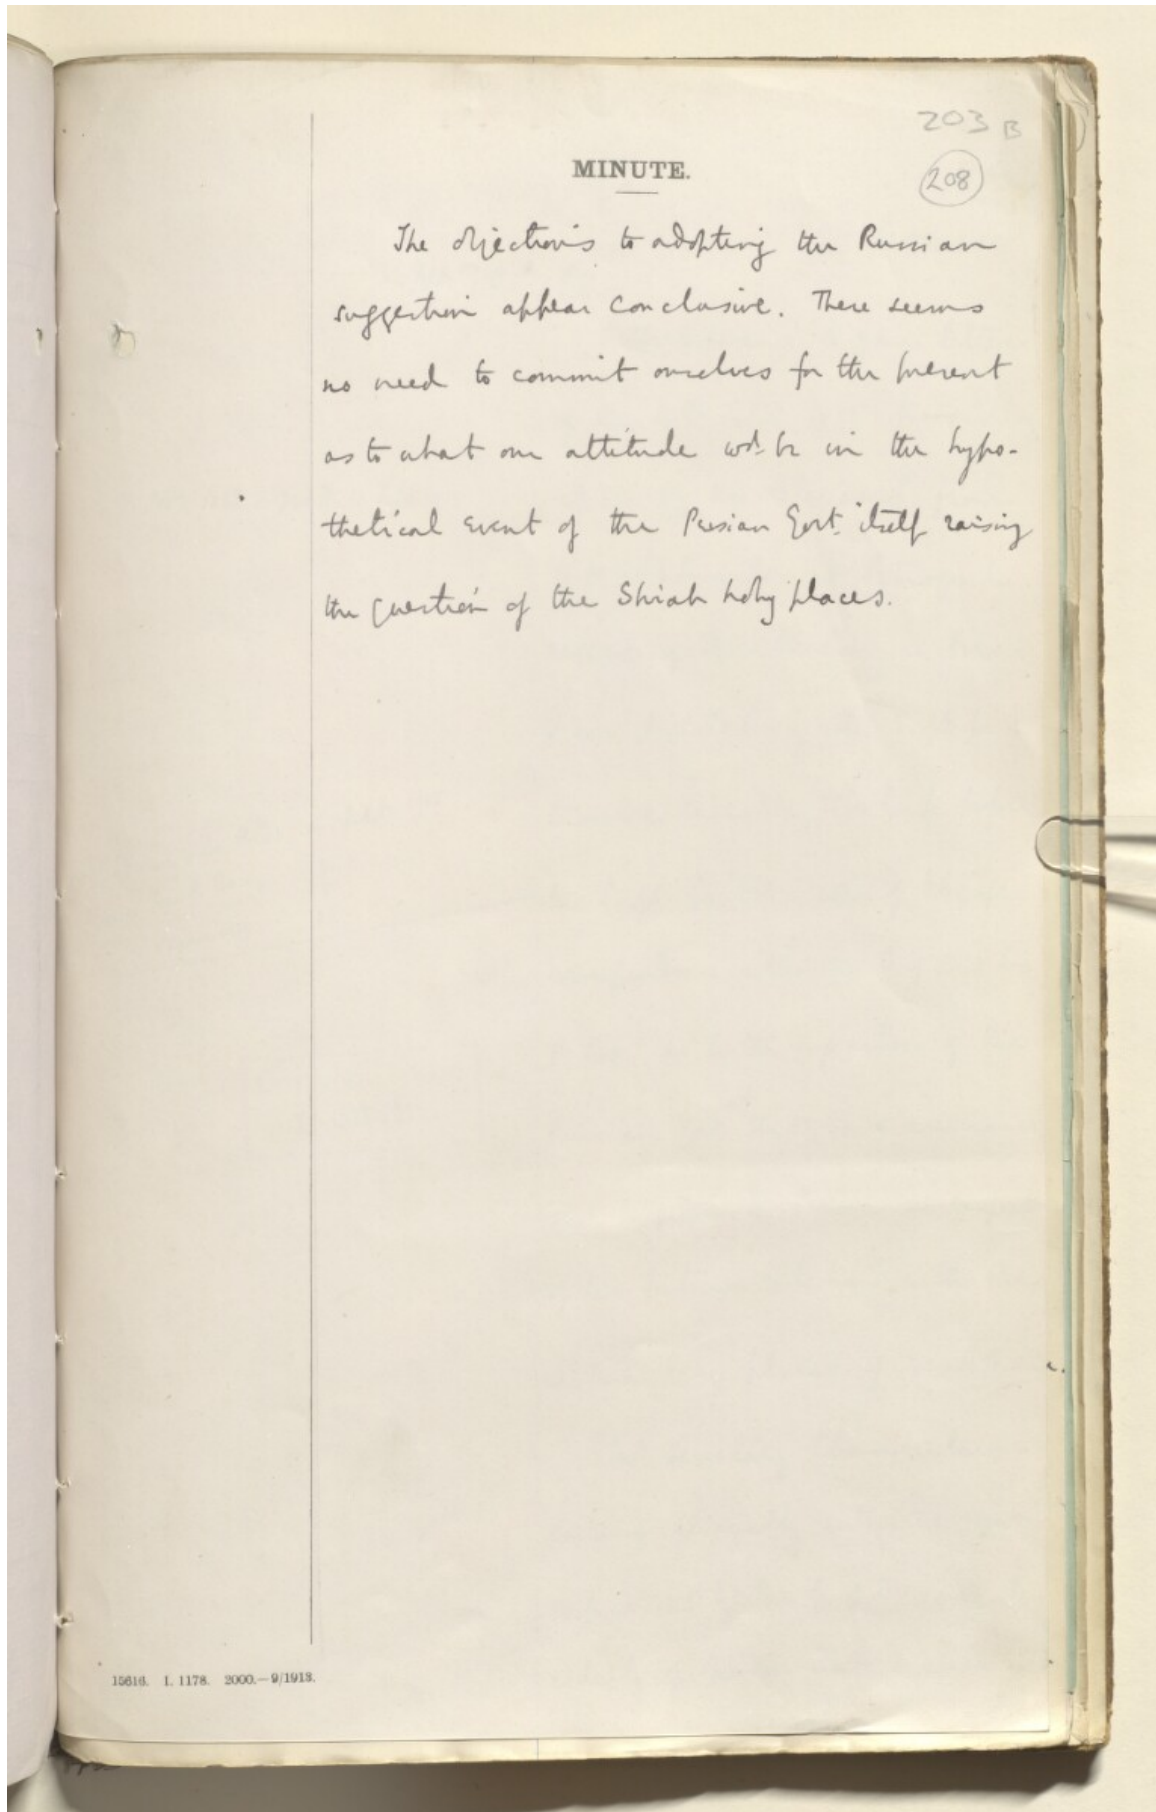 203 B
MINUTE.
208
The objections to adopting the Russian
suggestion appear conclusive. There seems
no need to commit ourselves for the present
as to what our attitude wd. be in the hypo-
thetical event of the Persian Govt. itself raising
the question of the Shiah holy places.
15616. I. 1178. 2000.—9/1913.